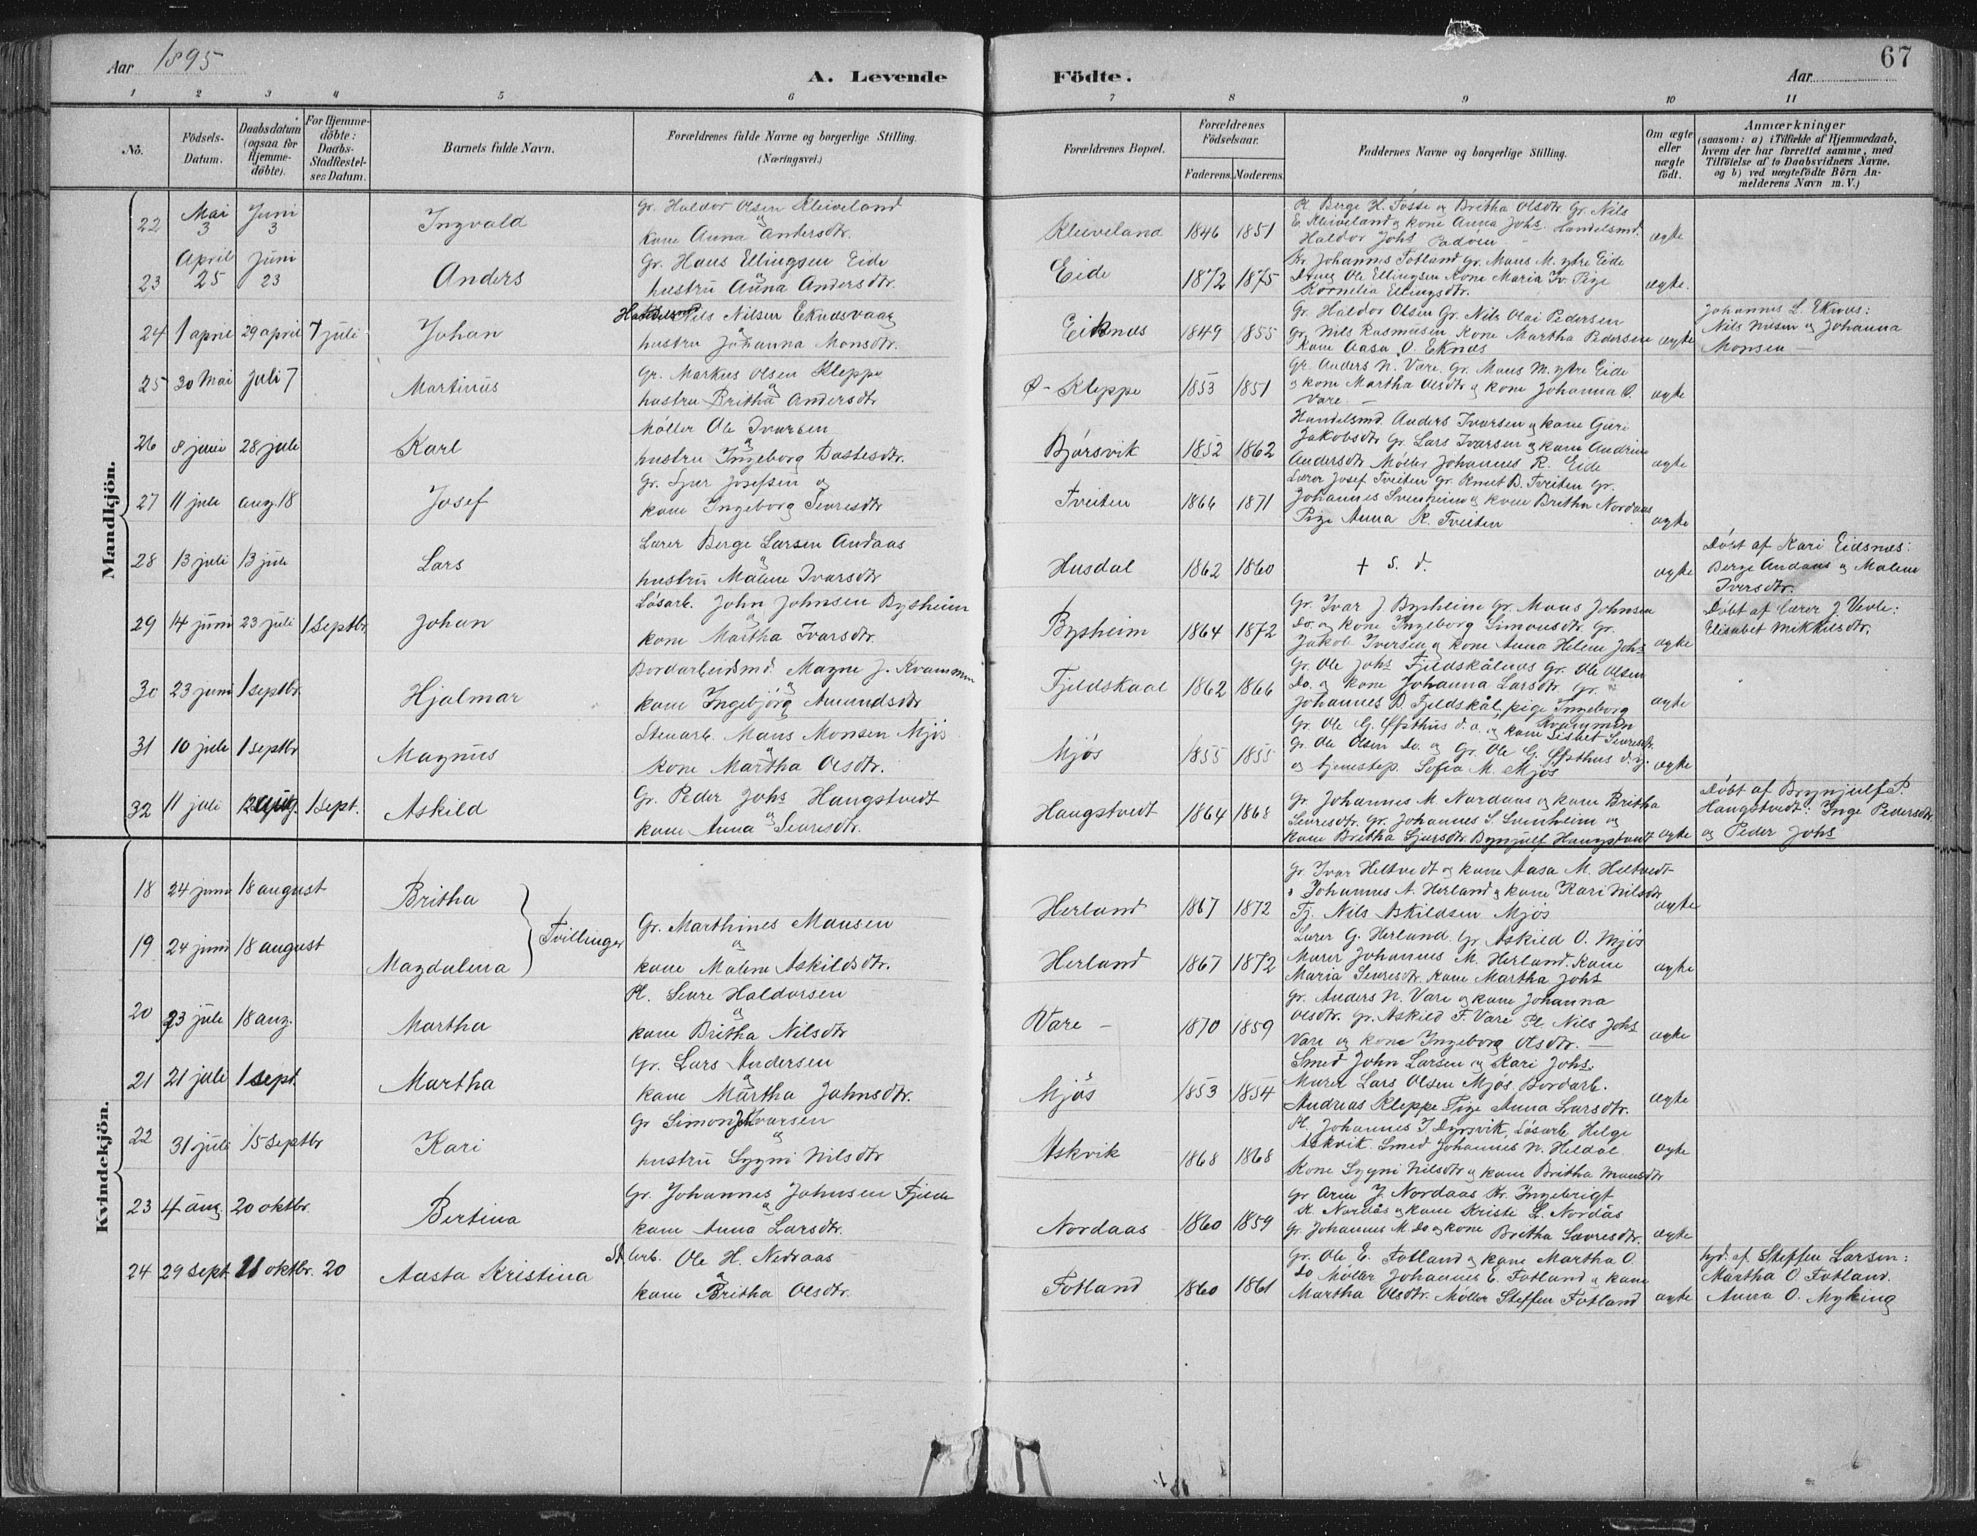 Aar 1895
A. Levende Födte.
Aar
67
1 2 3 4 5 6 7 8 9 10 11
No.
Födsels-Datum.
Daabsdatum (ogsaa for Hjemme-döbte).
For Hjemme-döbte: Daabs-Stadfæstel-ses Datum.
Barnets fulde Navn.
Forældrenes fulde Navne og borgerlige Stilling. (Næringsvei.)
Forældrenes Bopæl.
Forældrenes Födselsaar.
Faderens. Moderens.
Faddernes Navne og borgerlige Stilling.
Om ægte eller uægte födt.
Anmærkninger (saasom: a) i Tilfælde af Hjemmedaab, hvem der har forrettet samme, med Tilföielse af to Daabsvidners Navne, og b) ved uægtefödte Börn An-melderens Navn m. V.)
Mandkjön.
22 Mai 3 Juni 3 Ingvald
Gr. Haldor Olsen Kleiveland
og
kone Anna Andersdtr.
Kleiveland 1846 1851
Pl. Berge H. Fosse og Britha Olsdtr. Gr. Nils
E. Kleiveland og kone Anna Johs. Handelsmd.
Haldor Johs
ægte
23 April 25 Juni 23 Anders
Gr. Hans Ellingsen Eide
og
hustru Anna Andersdtr.
Eide 1872 1875
Kr. Johannes Fotland Gr. Mans M. ytre Eide
Dreng Ole Ellingsen Kone Maria Iv. Pige
Kornelia Ellingsdtr.
ægte.
24 1 april 29 april 7 juli Johan
Nils Nilsen Eknesvaag
og
hustru Johanna Monsdtr.
Eiknes 1849 1855
Gr. Haldor Olsen Gr. Nils Olai Pedersen
Gr. Nils Rasmusen Kone Martha Pedersen
Kone Aasa O. Eknes
ægte
Johannes L. Eknes:
Nils Nilsen og Johanna
Monsen
25 20 Mai Juli 7 Martinus
Gr. Markus Olsen Kleppe
og
hustru Britha Andersdtr
Ø-Kleppe 1853 1851
Gr. Anders N. Vare. Gr. Mans M. ytre Eide
og kone Martha Olsdtr og kone Johanna O.
Vare.
ægte
26 8 juni 28 juli Karl
Møller Ole Ivarsen
og
hustru Ingeborg Bastesdtr.
Bjørsvik 1852 1862
Handelsmd. Anders Ivarsen og kone Guri
Jakobsdtr Gr. Lars Ivarsen og kone Andrine
Andersdtr Møller Johannes R. Eide
ægte
27 11 juli aug. 18 Josef
Gr. Sjur Josefsen og
kone Ingeborg Sevresdtr.
Tveiten 1866 1871
Lærer Josef Tveiten Gr. Knut B. Tveiten Gr.
Johannes Svenheim og kone Britha Nordaas
Pige Anna K. Tveiten
ægte
28 13 juli 13 juli Lars
Lærer Berge Larsen Andaas
og
hustru Malene Ivarsdtr
Husdal 1862 1860
+ s. d.
ægte
Döbt af Kari Eidsnes:
Berge Andaas og Malene
Iversdtr.
29 14 juni 23 juli 1 Septbr. Johan
Løsarb. John Johnsen Bysheim
og
kone Martha Ivarsdtr.
Bysheim 1864 1872
Gr. Ivar J. Bysheim Gr. Mons Johnsen
Do. og kone Ingeborg Simonsdtr Gr.
Jakob Iversen og kone Anna Helene Johs
ægte
Döbt af Lærer J. Vevle:
Elisabet Mikkelsdtr.
30 23 juni 1 septbr. Hjalmar
Bordarbeidsmd. Magne J. Kvammen
og
kone Ingebjörg Amundsdtr
Fjeldskaal 1862 1866
Gr. Ole Johs Fjeldskålnes Gr. Ole Olsen
Do. og kone Johanna Larsdtr Gr.
Johannes B. Fjeldskål, pige Ingeborg
Kvammen
ægte
31 10 juli 1 septbr Magnus
Stenarb. Mans Monsen Mjös
og
kone Martha Olsdtr.
Mjös 1855 1855
Gr. Ole G. Øfsthus d. æ. og kone Lisbet Sevresdtr.
Gr. Ole Olsen Do. og Gr. Ole G. Øfsthus d. y.
og tjenestep. Sofia M. Mjös
ægte
32 11 juli 12 aug. 1 sept. Askild
Gr. Peder Johs Haugstvedt
og
kone Anna Sevresdtr.
Haugstvedt 1864 1868
Gr. Johannes M. Nordaas og kone Britha
Sevresdtr. Gr. Johannes S. Svenheim og
kone Britha Sjursdtr Brynjulf Haugstvedt
ægte
Döbt af Brynjulf P.
Haugstvedt: Inge Pedersdtr
og Peder Johs
Kvindekjön.
18 24 juni 18 august Britha
Tvillinger
Herland 1867 1872
Gr. Ivar Heltvedt og kone Aasa M. Heltvedt
Johannes A. Herland og kone Kari Nilsdtr
Tj. Nils Askildsen Mjös
ægte
19 24 juni 18 august Magdalena
Gr. Marthines Mansen
og
kone Malene Askildsdtr.
Herland 1867 1872
Lærer G. Herland. Gr. Askild O. Mjös
Murer Johannes M. Herland. Kone
Maria Sevresdtr. Kone Martha Johs
ægte
20 23 juli 18 aug. Martha
Pl. Sevre Haldorsen
og
kone Britha Nilsdtr
Vare 1870 1859
Gr. Anders N. Vare og kone Johanna
Olsdtr. Gr. Askild F. Vare Pl. Nils Johs
Vare og kone Ingeborg Olsdtr.
ægte
21 21 juli 1 sept. Martha
Gr. Lars Andersen
og
kone Martha Johnsdtr.
Mjös 1853 1854
Smed John Larsen og Kari Johs.
Murer Lars Olsen Mjös. Bordarb.
Andreas Kleppe Pige Anna Larsdtr.
ægte
22 31 juli 15 septbr Kari
Gr Simon Ivarsen
og
hustru Sygni Nilsdtr
Askvik 1868 1868
Pl. Johannes I Dyrsvik, Løsarb. Helge
Askvik. Smed Johannes N. Heldal
Kone Sygni Nilsdtr og kone Britha Mansdtr
ægte
23 4 aug 20 oktbr. Bertina
Gr. Johannes Johnsen Fjelde
og
kone Anna Larsdtr.
Nordaas 1860 1859
Gr. Arne J. Nordaas Kr. Ingebrigt
K. Nordås og kone Kriste L. Nordås
Gr. Johannes M. Do og kone Britha Sevresdtr.
ægte
24 29 sept. 11 oktbr. 20 Aasta Kristina
St. arb. Ole H. Nedraas
og
kone Britha Olsdtr.
Fotland 1860 1861
Gr. Ole E. Fotland og kone Martha O.
Do Møller Johannes E. Fotland og kone
Martha Olsdtr. Møller Steffen Fotland
ægte
hjd. af Steffen Larsen:
Martha O. Fotland.
Anna O. Myking